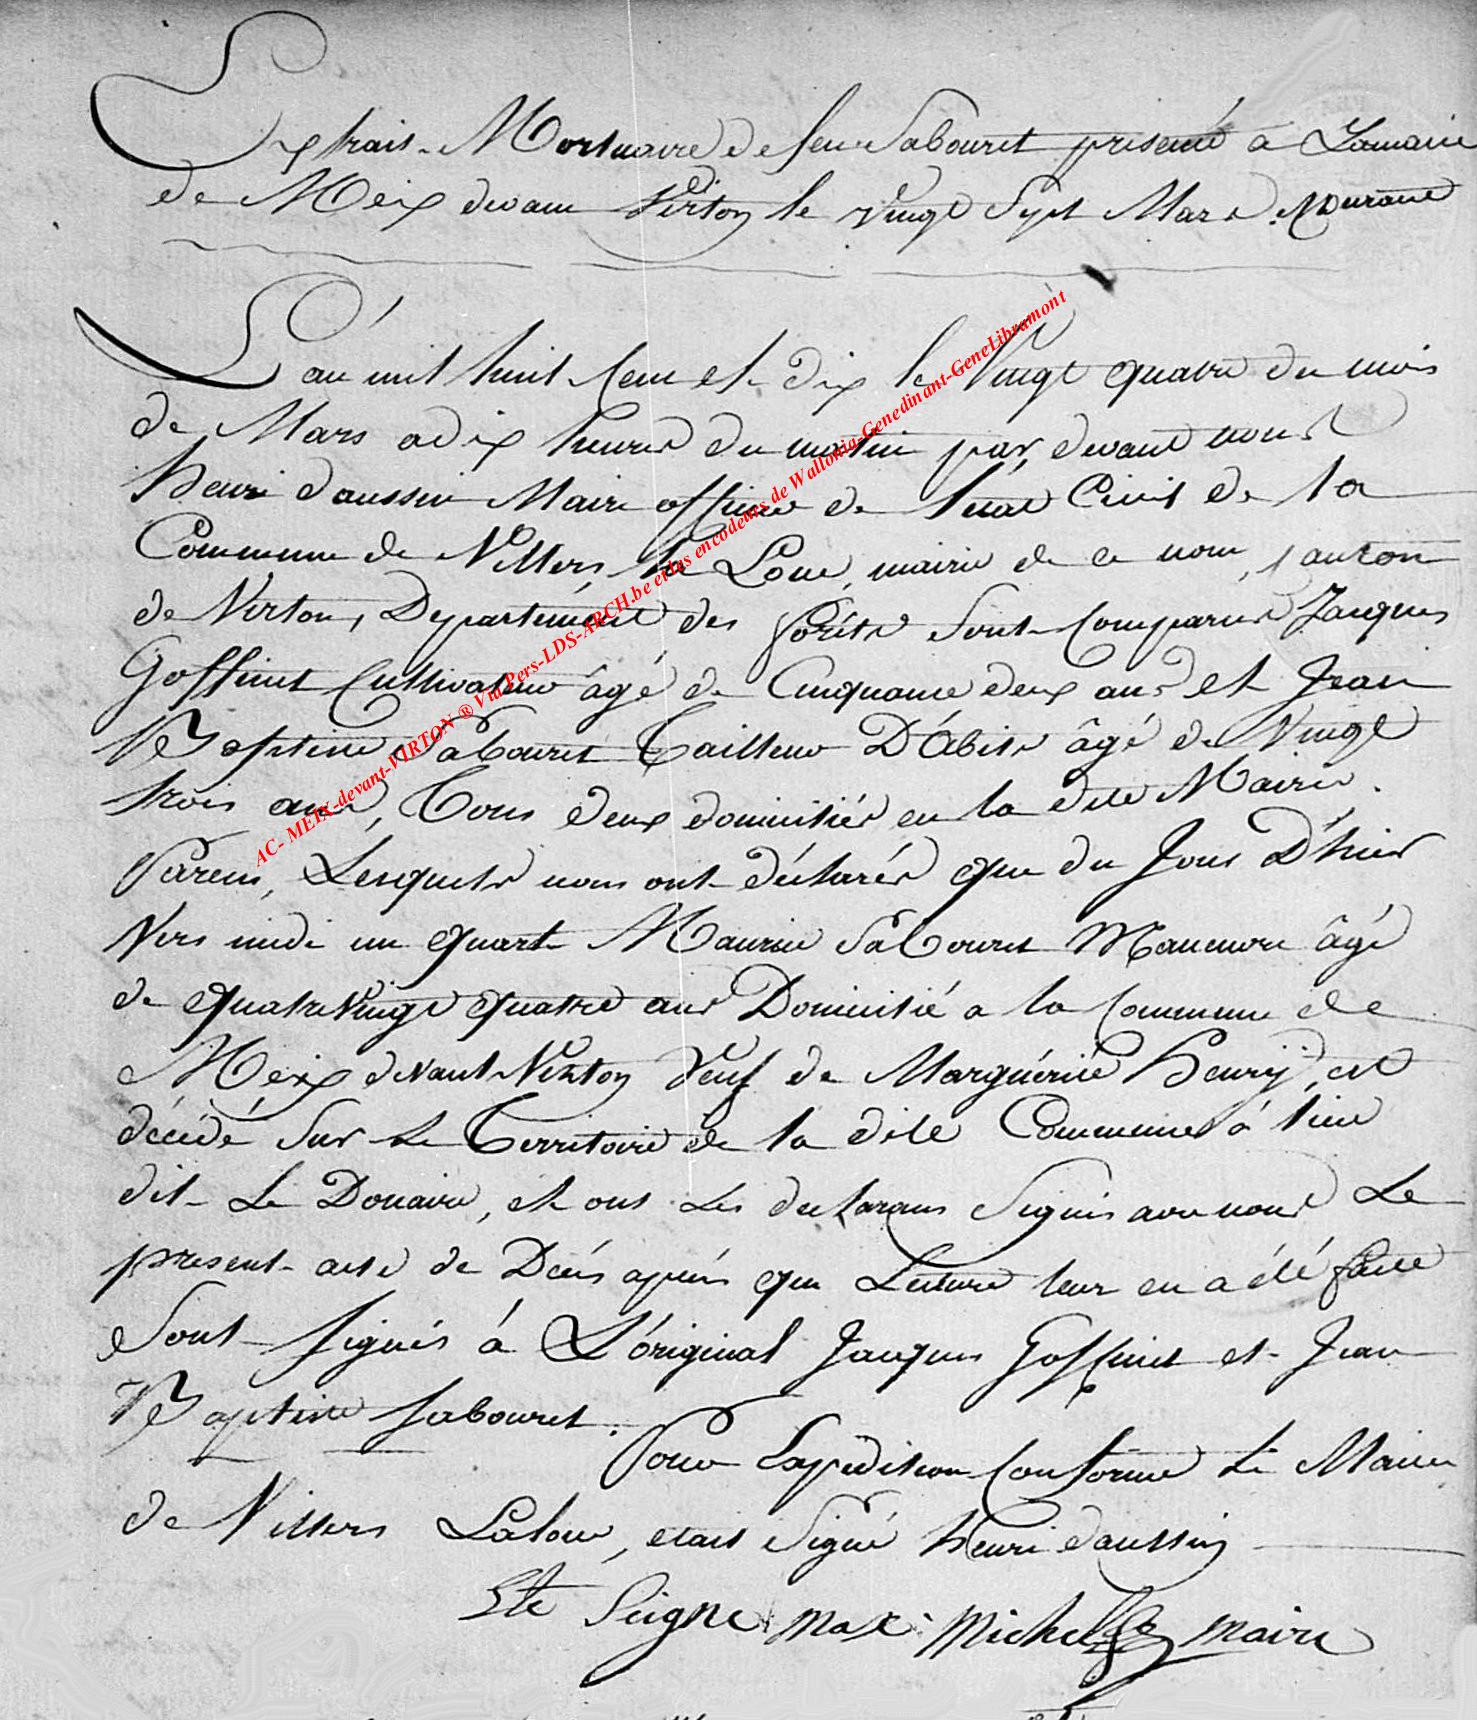 Extrait Mortuaire de feu Sabouret presenté à Lamairie
de Meix devant Virton le vingt Sept Mars Courant
L'an mil huit Cent et dix le Vingt quatre du mois
de Mars a dix heures du matin par devant nous
henri daussin Maire officier de l'état Civil de la
Commune de Villers la Loue, mairie de ce nom, Canton
de Virton, Departement des forêts Sont Comparus Jacques
Goffinet Cultivateur âgé de Cinquante deux ans et Jean
Baptiste Sabouret Tailleur D'abits âgé de Vingt
trois ans, Tous deux domiciliés en la dite Mairie.
Parens, Lesquels nous ont déclarés que du Jour D'hier
Vers midi un quart Maurice Sabouret Manuvre âgé
de quatre Vingt quatre ans Domicilié a la Commune de
Meix devant Virton Veuf de Marguérite Henrij, est
décédé Sur Le Territoire de la dite Commune à lieu
dit Le Douaire, et ont Les declarans Signés avec nous Le
present acte de Décés aprés que Lecture leur en a été faite
Sont Signés à L'óriginal Jacques Goffinet et Jean
Baptiste Sabouret.
Pour Expédition Conforme Le Maire
de Villers Laloue, etait Signé henri daussin
Ete Seigne Max: Michel maire
AC- MEIX-devant-VIRTON ® Via Pers-LDS-ARCH.be et les encodeurs de Wallonia-Genedinant-GeneLibramont